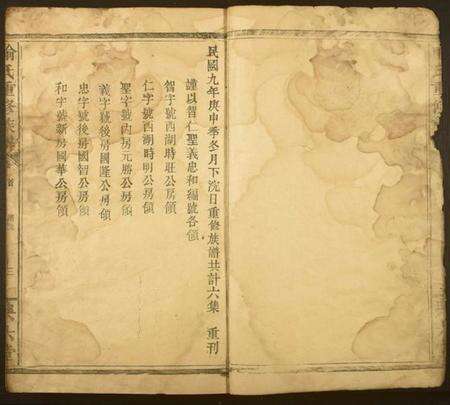 民國九年庚申季冬月下浣日重修族譜共計六集 重刊
謹以智仁聖義忠和編號各領
智字號西湖時莊公房領
仁字號西湖時明公房領
聖字號內房元勝公房領
義字號後房國蓬公房領
忠字號後房國智公房領
和字號新房國華公房領